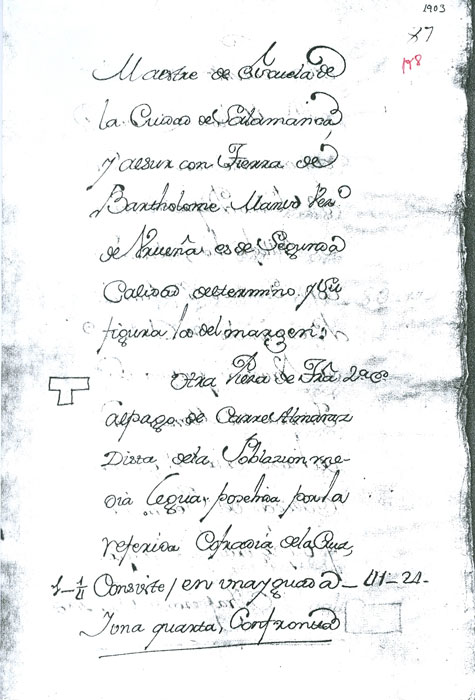 1903
27
178
Maestre de Escuela de
la Ciudad de Salamanca
y al sur con Tierra de
Bartholome Manso Vezº
de Nrueña es de Segunda
Calidad del termino, y Su
figura la del margen:
Otra Pieza de Tra 2ª Cd
al pago de Carre Almaraz
Dista de la Poblazion me-
dia legua, posehida por la
referida Cofradia de la Cruz,
1-1/4 Consiste/ en una yguada - 41-21-
I una quarta, Confronta